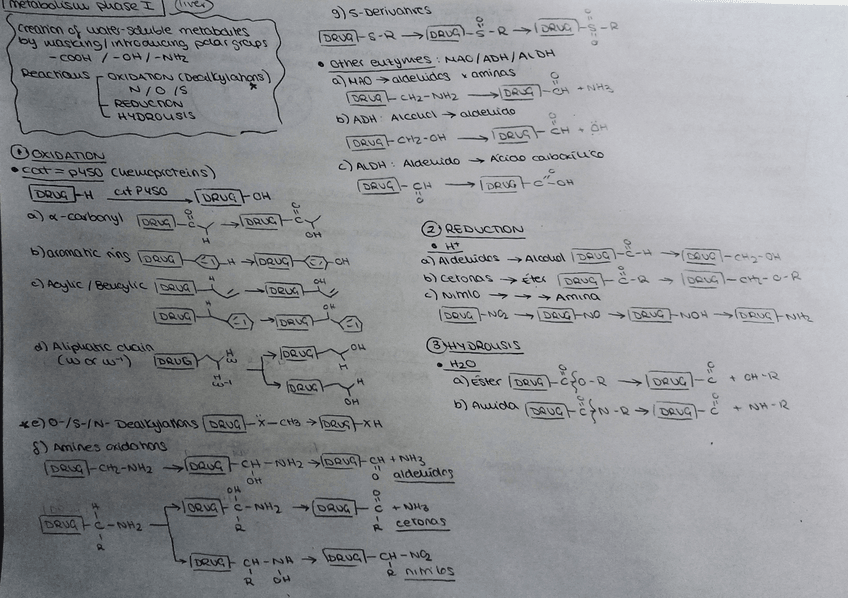 Metabolism phase I (liver)
Creation of water-soluble metabolites
by masking/introducing polar groups
-COOH / -OH / -NH2
Reactions OXIDATION (Dealkylations)
N / O / S *
REDUCTION
HYDROLISIS
① OXIDATION
• cat = P450 (hemoproteins)
DRUG-H cat P450 DRUG-OH
a) α-carbonyl DRUG-C O H → DRUG-C O OH
b) aromatic ring DRUG- -H → DRUG- -OH
c) Acylic / Benzylic DRUG H → DRUG OH
DRUG H → DRUG OH
d) Aliphatic chain DRUG H ω → DRUG OH H
(ω or ω-1) H ω-1 DRUG H OH
*e) O-/S-/N- Dealkylations DRUG-X-CH3 → DRUG-XH
f) Amines oxidations
DRUG-CH2-NH2 → DRUG-CH-NH2 → DRUG-CH + NH3
OH O aldeidos
DRUG-C-NH2 → DRUG-C-NH2 → DRUG-C + NH3
H R OH R O R cetonas
DRUG-CH-NH → DRUG-CH-NO2
R OH R nitrilos
g) S-Derivatives
DRUG-S-R → DRUG-S-R → DRUG-S-R
O O O
• Other enzymes: MAO/ADH/ALDH
a) MAO → aldeidos x aminas
DRUG-CH2-NH2 → DRUG-CH + NH3
O
b) ADH: Alcool → aldeido
DRUG-CH2-OH → DRUG-CH + OH
O
c) ALDH: Aldeido → Acido carboxilico
DRUG-CH → DRUG-C-OH
O O
② REDUCTION
• H+
a) Aldeidos → Alcool DRUG-C-H → DRUG-CH2-OH
O
b) Cetonas → Éter DRUG-C-R → DRUG-CH2-O-R
O
c) Nitrilo → → → Amina
DRUG-NO2 → DRUG-NO → DRUG-NOH → DRUG-NH2
③ HYDROLISIS
• H2O
a) Éster DRUG-C O-R → DRUG-C + OH-R
O O
b) Amida DRUG-C N-R → DRUG-C + NH-R
O O